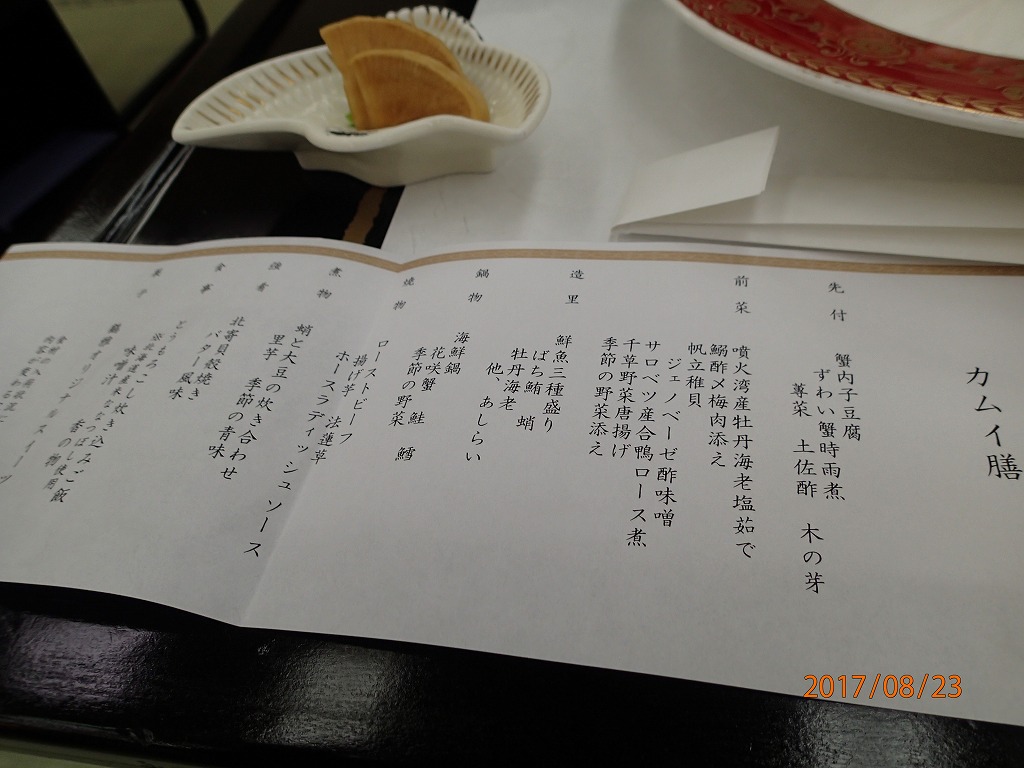 カムイ膳
先付
蟹内子豆腐
ずわい蟹時雨煮
蓴菜 土佐酢 木の芽
前菜
噴火湾産牡丹海老塩茹で
鰯酢〆梅肉添え
帆立稚貝
ジェノベーゼ酢味噌
サロベツ産合鴨ロース煮
千草野菜唐揚げ
季節の野菜添え
造里
鮮魚三種盛り
ばち鮪 蛸
牡丹海老
他、あしらい
鍋物
海鮮鍋
花咲蟹 鮭 鱈
季節の野菜
焼物
ローストビーフ
揚げ芋 法蓮草
ホースラディッシュソース
煮物
蛸と大豆の炊き合わせ
里芋 季節の青味
強肴
北寄貝殻焼き
バター風味
食事
とうもろこし炊き込みご飯
※北海道米ななつぼし使用
味噌汁 香の物
菓子
オリジナルスイーツ
2017/08/23